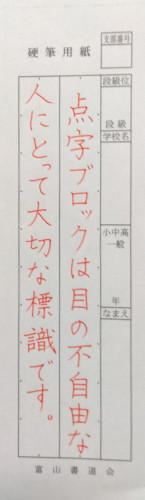 支部番号
硬筆用紙
段級位
段級
学校名
小中高
一般
年
なまえ
点字ブロックは目の不自由な
人にとって大切な標識です。
富山書道会